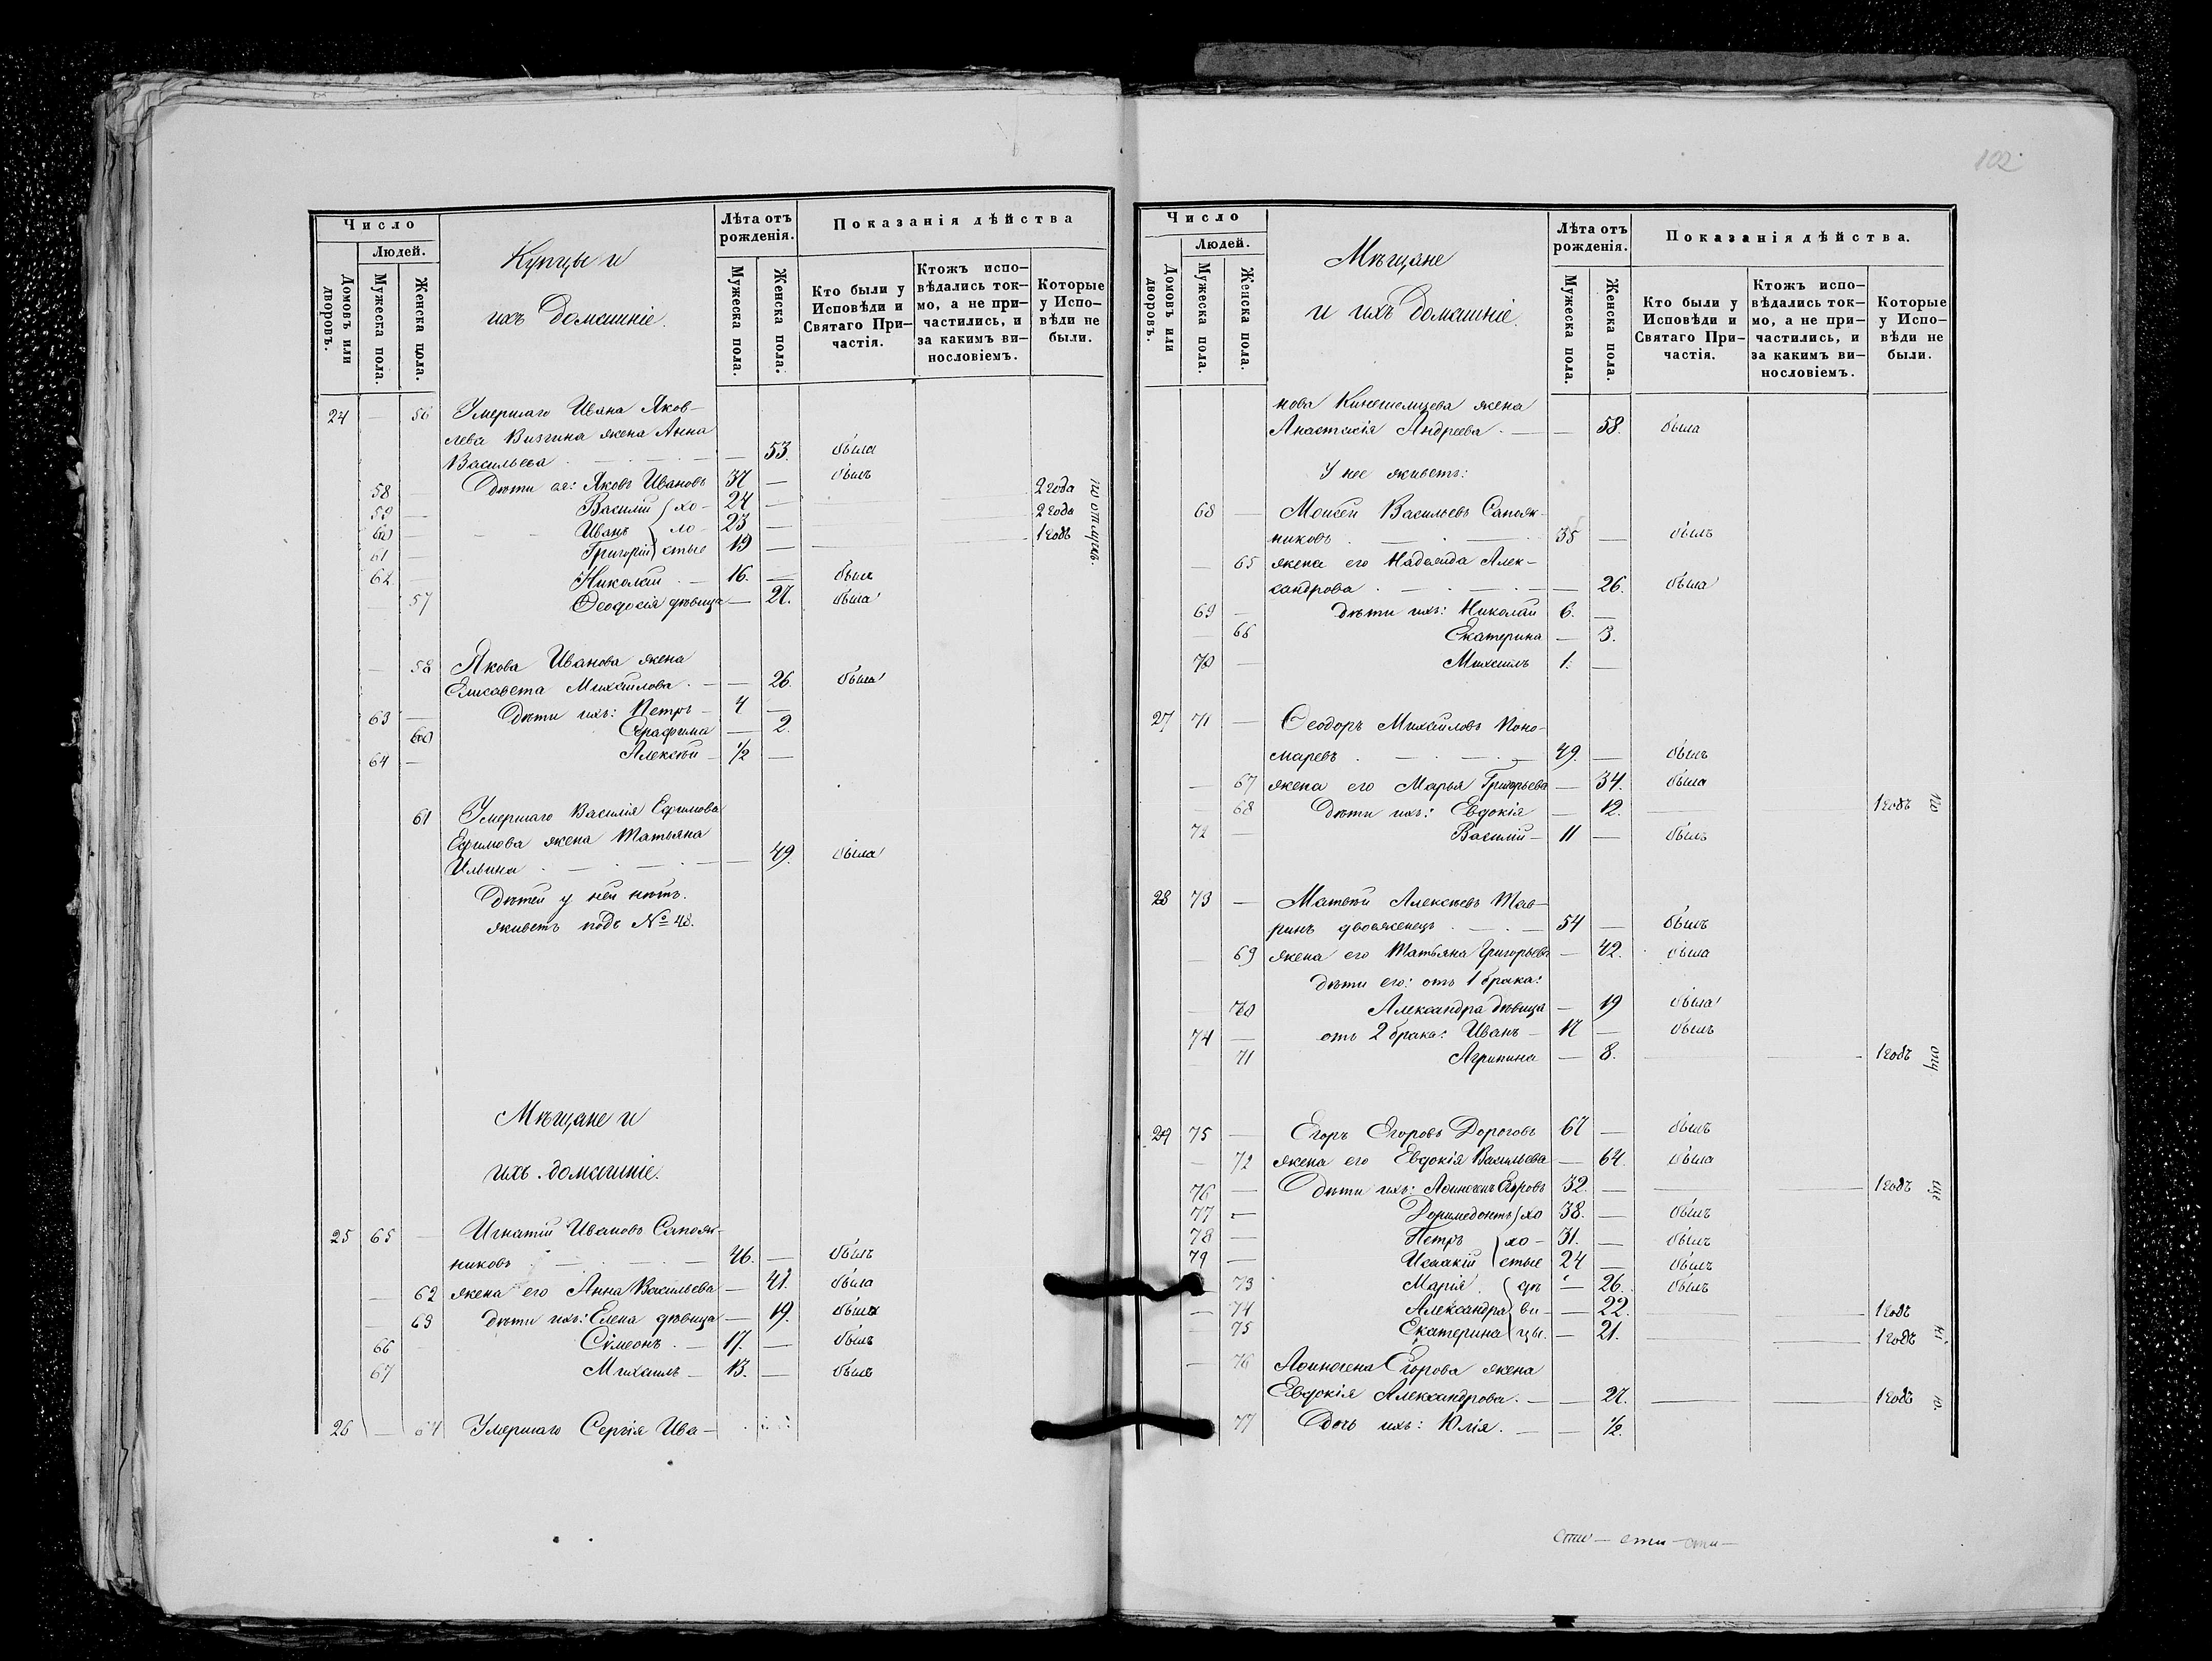 102.
Число
Людей.
Домовъ или дворовъ.
Мужеска пола.
Женска пола.
Купцы и
ихъ домашніе.
Лѣта отъ рожденія.
Мужеска пола.
Женска пола.
Показанія дѣйства
Кто были у Исповѣди и Святаго Причастія.
Ктожъ исповѣдались токмо, а не причастились, и за какимъ винословіемъ.
Которые у Исповѣди не были.
24 — 56 Умершаго Ивана Яков-
лева Визгина жена Анна
Васильева — — 53. была
58 Дѣти ея: Яковъ Ивановъ 37 — былъ
59 — Василій хо- 24 — 2 года
60 — Иванъ ло- 23 — 2 года
61 — Григорій стые 19 — 1 годъ
по отлучкѣ.
62 — Николай — 16. — былъ
57 Феодосія дѣвица — 27. была
— 58 Якова Иванова жена
Елисавета Михайлова — — 26. была
63 — Дѣти ихъ: Петръ — 4 —
60 Серафима — 2.
64 — Алексѣй — 1/2 —
61 Умершаго Василія Ефимова
Ефимова жена Татьяна
Ильина — — 49. была
Дѣтей у ней нѣтъ.
живетъ подъ № 48.
Мѣщане и
ихъ домашніе.
25 65 — Игнатій Ивановъ Сапож-
никовъ — 46. — былъ
— 62 жена его Анна Васильева — 41. была
— 63 дѣти ихъ: Елена дѣвица — 19. была
66 Сѵмеонъ — 17. — былъ
67 Михаилъ — 13. — былъ
26 — 64 Умершаго Сергія Ива-
Число
Людей.
Домовъ или дворовъ.
Мужеска пола.
Женска пола.
Мѣщане
и ихъ домашніе.
Лѣта отъ рожденія.
Мужеска пола.
Женска пола.
Показанія дѣйства.
Кто были у Исповѣди и Святаго Причастія.
Ктожъ исповѣдались токмо, а не причастились, и за какимъ винословіемъ.
Которые у Исповѣди не были.
нова Кинешемцева жена
Анастасія Андреева. — — 58. была
У нее живетъ:
68 — Моисей Васильевъ Сапож-
никовъ — 35 — былъ
— 65 жена его Надежда Алек-
сандрова — — 26. была
69 — дѣти ихъ: Николай 6. —
— 66 Екатерина — 3.
70 — Михаилъ 1. —
27 71 — Феодоръ Михайловъ Поно-
маревъ — 49. — былъ
— 67 жена его Марья Григорьева — 34. была
68 Дѣти ихъ: Евдокія — 12. — 1 годъ по
72 — Василій — 11 — былъ
28 73 — Матвѣй Алексѣевъ Тав-
ринъ двоеженецъ — 54 — былъ
— 69 жена его Татьяна Григорьева — 42. была
дѣти его: отъ 1 брака:
— 70 Александра дѣвица — 19 была
74 — отъ 2 брака: Иванъ — 17 — былъ
— 71 Агрипина — 8. — 1 годъ
29 75 — Егоръ Егоровъ Дороговъ 67 — былъ
— 72 жена его Евдокія Васильева — 64. была
76 — Дѣти ихъ: Аѳиногенъ Егоровъ 32. — 1 годъ
77 — Доримедонтъ хо 38. — былъ
78 — Петръ ло- 31. — былъ
79 — Исаакій стые 24 — былъ
73 Марія дѣ — 26. былъ
— 74 Александра ви- — 22. — 1 годъ
— 75 Екатерина цы. — 21. — 1 годъ
— 76 Аѳиногена Егорова жена
Евдокія Александрова. — — 27. — 1 годъ
77 Дочь ихъ: Юлія. — — 1/2.